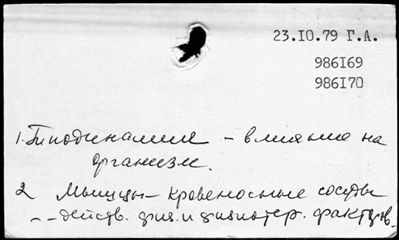 23.IO.79 Г.А.
986I69
986I70
1. Гиподинамия – влияние на
организм.
2 Мышцы – кровеносные сосуды
-- действ. физ. и физиотер. факторов.